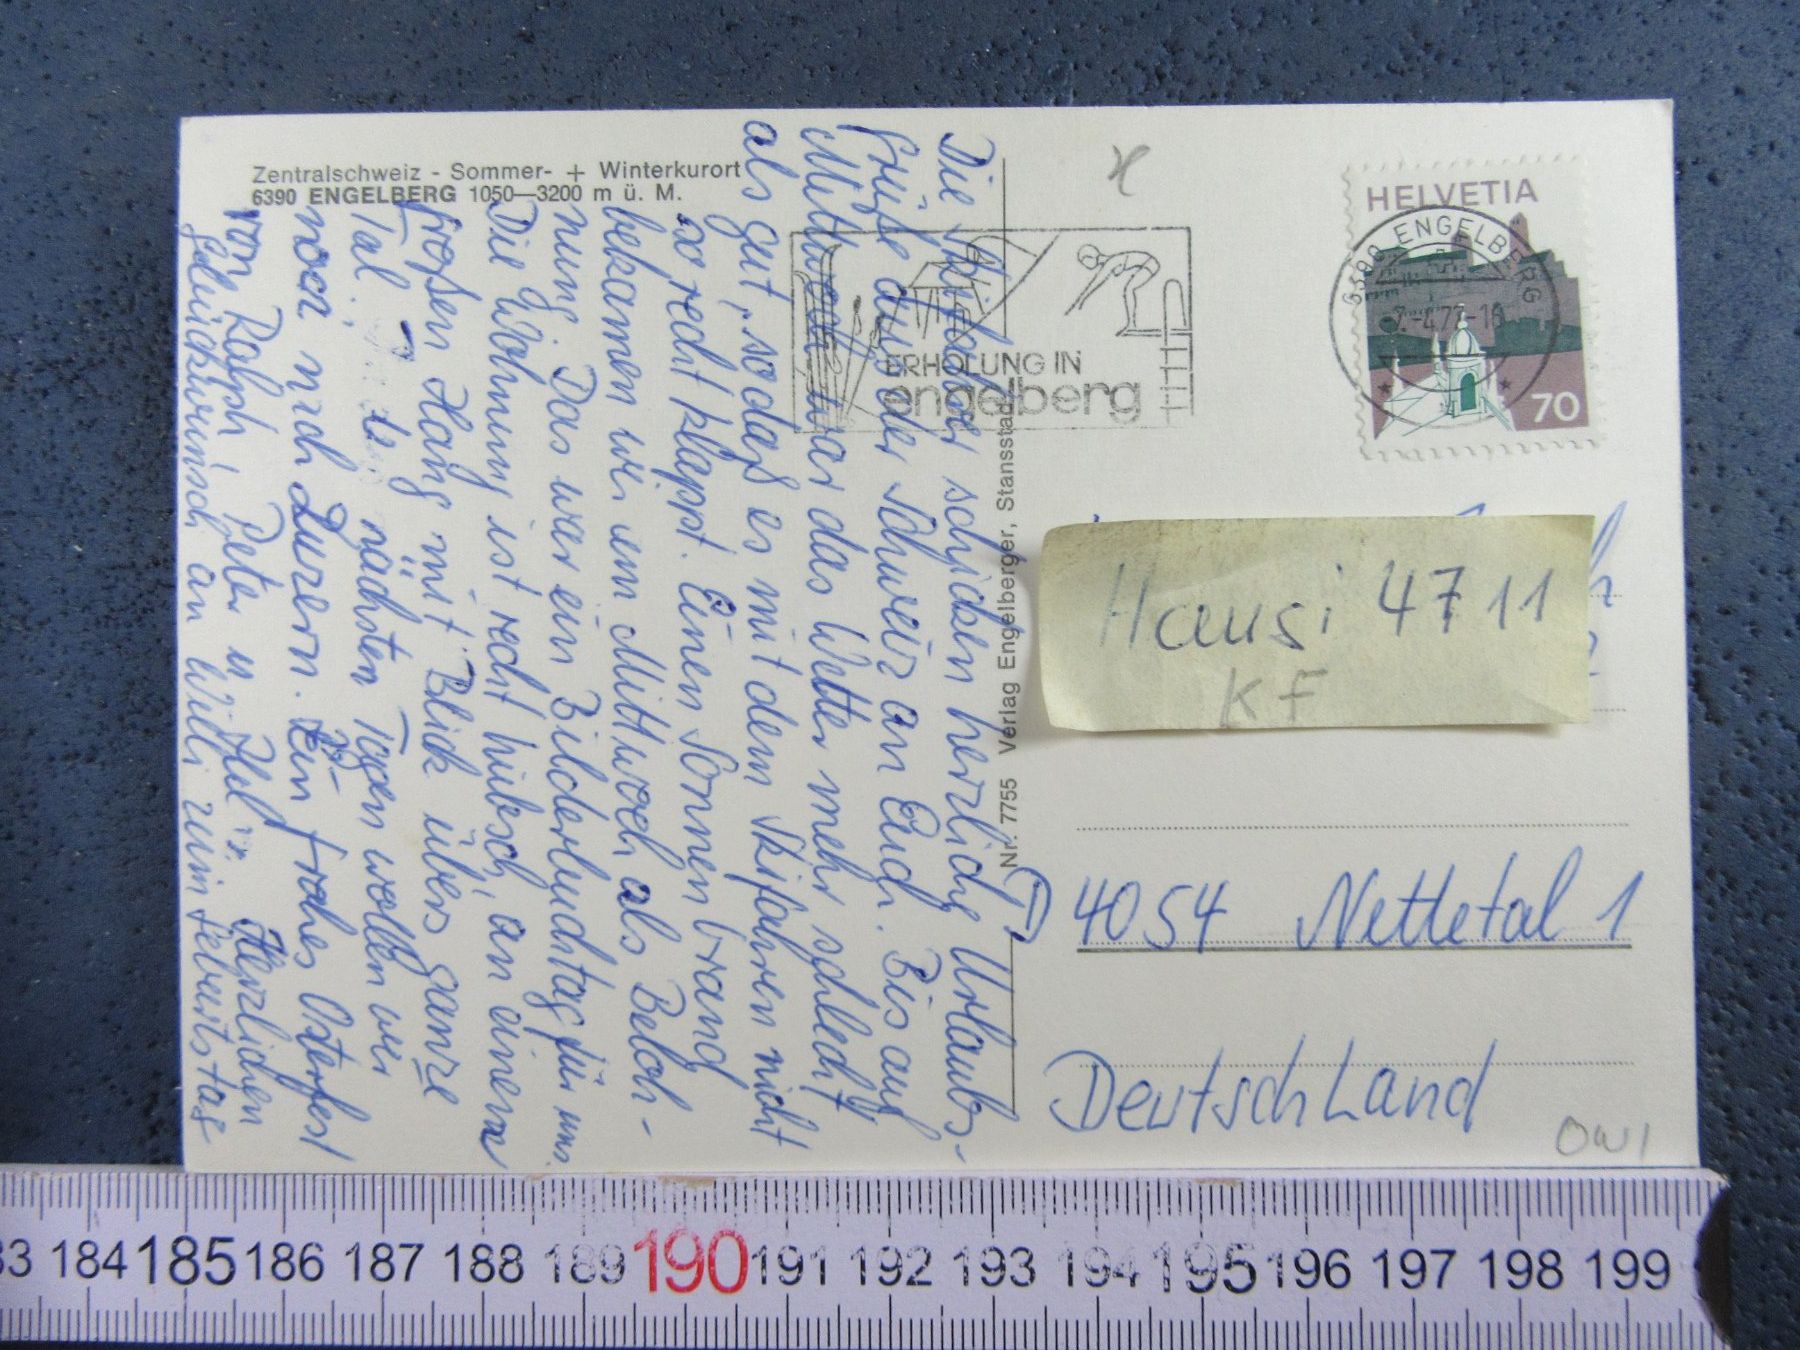 Zentralschweiz - Sommer- + Winterkurort
6390 ENGELBERG 1050—3200 m ü. M.
Die Skifahrer schicken herzliche Urlaubs-
grüße aus der Schweiz an Euch. Bis auf
Mittwoch war das Wetter mehr schlecht
als gut, so daß es mit dem Skifahren nicht
so recht klappt. Einen Sonnenbrand
bekamen wir am Mittwoch als Beloh-
nung. Das war ein Bilderbuchtag für uns.
Die Wohnung ist recht hübsch, an einem
großen Hang mit Blick übers ganze
Tal. In den nächsten Tagen wollen wir
noch nach Luzern. Ein frohes Osterfest
von Ralph, Peter u. Herzlichen
Glückwunsch an Willi zum Geburtstag
ERHOLUNG IN
engelberg
HELVETIA
6390 ENGELBERG
70
Nr. 7755 Verlag Engelberger, Stansstad
Hausi 4711
KF
D
4054 Nettetal 1
Deutschland
OW1
183 184 185 186 187 188 189 190 191 192 193 194 195 196 197 198 199